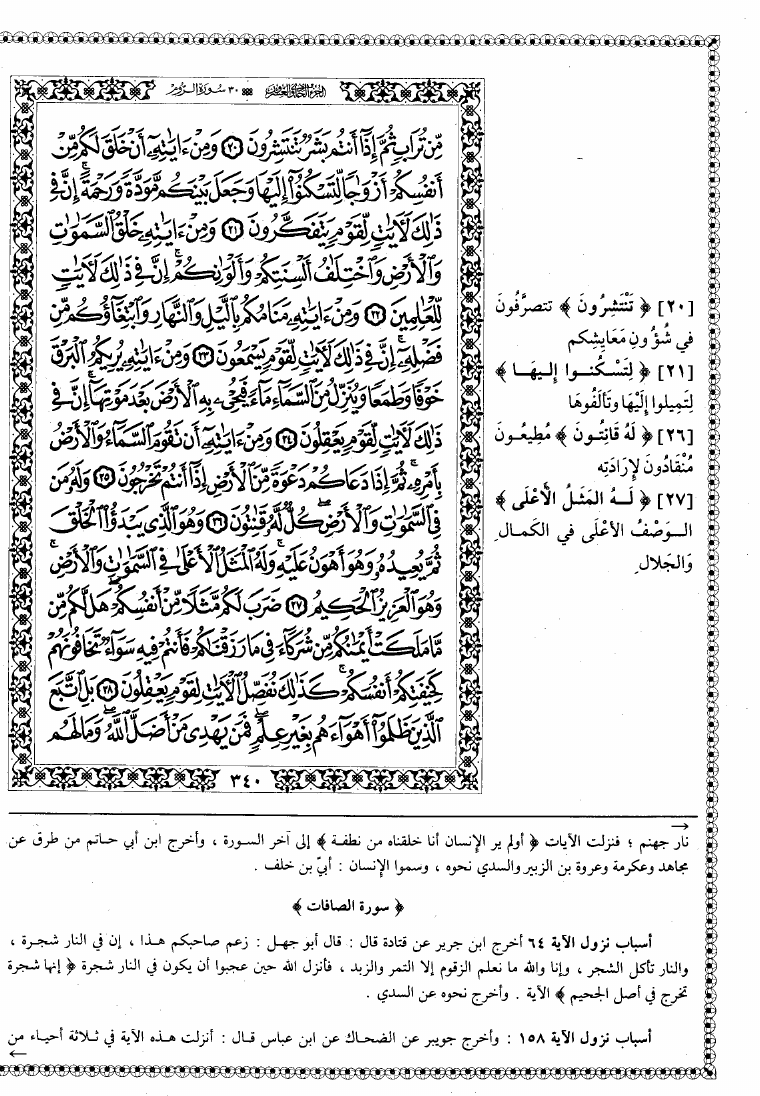 الجزء الحادي والعشرون ٣٠ سورة الروم
مِّن تُرَابٍ ثُمَّ إِذَآ أَنتُم بَشَرٌ تَنتَشِرُونَ ٢٠ وَمِنْ ءَايَٰتِهِۦٓ أَنْ خَلَقَ لَكُم مِّنْ
أَنفُسِكُمْ أَزْوَٰجًا لِّتَسْكُنُوٓا۟ إِلَيْهَا وَجَعَلَ بَيْنَكُم مَّوَدَّةً وَرَحْمَةً ۚ إِنَّ فِى
ذَٰلِكَ لَءَايَٰتٍ لِّقَوْمٍ يَتَفَكَّرُونَ ٢١ وَمِنْ ءَايَٰتِهِۦ خَلْقُ ٱلسَّمَٰوَٰتِ
وَٱلْأَرْضِ وَٱخْتِلَٰفُ أَلْسِنَتِكُمْ وَأَلْوَٰنِكُمْ ۚ إِنَّ فِى ذَٰلِكَ لَءَايَٰتٍ
لِّلْعَٰلِمِينَ ٢٢ وَمِنْ ءَايَٰتِهِۦ مَنَامُكُم بِٱلَّيْلِ وَٱلنَّهَارِ وَٱبْتِغَآؤُكُم مِّن
فَضْلِهِۦٓ ۚ إِنَّ فِى ذَٰلِكَ لَءَايَٰتٍ لِّقَوْمٍ يَسْمَعُونَ ٢٣ وَمِنْ ءَايَٰتِهِۦ يُرِيكُمُ ٱلْبَرْقَ
خَوْفًا وَطَمَعًا وَيُنَزِّلُ مِنَ ٱلسَّمَآءِ مَآءً فَيُحْىِۦ بِهِ ٱلْأَرْضَ بَعْدَ مَوْتِهَآ ۚ إِنَّ فِى
ذَٰلِكَ لَءَايَٰتٍ لِّقَوْمٍ يَعْقِلُونَ ٢٤ وَمِنْ ءَايَٰتِهِۦٓ أَن تَقُومَ ٱلسَّمَآءُ وَٱلْأَرْضُ
بِأَمْرِهِۦ ۚ ثُمَّ إِذَا دَعَاكُمْ دَعْوَةً مِّنَ ٱلْأَرْضِ إِذَآ أَنتُمْ تَخْرُجُونَ ٢٥ وَلَهُۥ مَن
فِى ٱلسَّمَٰوَٰتِ وَٱلْأَرْضِ ۖ كُلٌّ لَّهُۥ قَٰنِتُونَ ٢٦ وَهُوَ ٱلَّذِى يَبْدَؤُا۟ ٱلْخَلْقَ
ثُمَّ يُعِيدُهُۥ وَهُوَ أَهْوَنُ عَلَيْهِ ۚ وَلَهُ ٱلْمَثَلُ ٱلْأَعْلَىٰ فِى ٱلسَّمَٰوَٰتِ وَٱلْأَرْضِ ۚ
وَهُوَ ٱلْعَزِيزُ ٱلْحَكِيمُ ٢٧ ضَرَبَ لَكُم مَّثَلًا مِّنْ أَنفُسِكُمْ ۖ هَل لَّكُم مِّن
مَّا مَلَكَتْ أَيْمَٰنُكُم مِّن شُرَكَآءَ فِى مَا رَزَقْنَٰكُمْ فَأَنتُمْ فِيهِ سَوَآءٌ تَخَافُونَهُمْ
كَخِيفَتِكُمْ أَنفُسَكُمْ ۚ كَذَٰلِكَ نُفَصِّلُ ٱلْءَايَٰتِ لِقَوْمٍ يَعْقِلُونَ ٢٨ بَلِ ٱتَّبَعَ
ٱلَّذِينَ ظَلَمُوٓا۟ أَهْوَآءَهُم بِغَيْرِ عِلْمٍ ۖ فَمَن يَهْدِى مَنْ أَضَلَّ ٱللَّهُ ۖ وَمَا لَهُم
٣٤٠
[٢٠] ﴿ تَنْتَشِرُونَ ﴾ تتصرَّفُونَ
في شُؤُونِ مَعَايِشِكم
[٢١] ﴿ لِتَسْكُنُوا إِليهَا ﴾
لِتَمِيلوا إِلَيْهَا وتَأْلَفُوهَا
[٢٦] ﴿ لَهُ قَانِتُونَ ﴾ مُطِيعُونَ
مُنْقَادُونَ لإِرَادَتِه
[٢٧] ﴿ لَهُ المَثَلُ الأَعْلَى ﴾
الوَصْفُ الأعْلَى في الكَمالِ
وَالجَلالِ
→
نار جهنم ؛ فنزلت الآيات ﴿ أولم ير الإنسان أنا خلقناه من نطفة ﴾ إلى آخر السورة ، وأخرج ابن أبي حاتم من طرق عن
مجاهد وعكرمة وعروة بن الزبير والسدي نحوه ، وسموا الإنسان : أبيّ بن خلف .
﴿ سورة الصافات ﴾
أسباب نزول الآية ٦٤ أخرج ابن جرير عن قتادة قال : قال أبو جهل : زعم صاحبكم هذا ، إن في النار شجرة ،
والنار تأكل الشجر ، وإنا والله ما نعلم الزقوم إلا التمر والزبد ، فأنزل الله حين عجبوا أن يكون في النار شجرة ﴿ إنها شجرة
تخرج في أصل الجحيم ﴾ الآية . وأخرج نحوه عن السدي .
أسباب نزول الآية ١٥٨ : وأخرج جويبر عن الضحاك عن ابن عباس قال : أنزلت هذه الآية في ثلاثة أحياء من
←